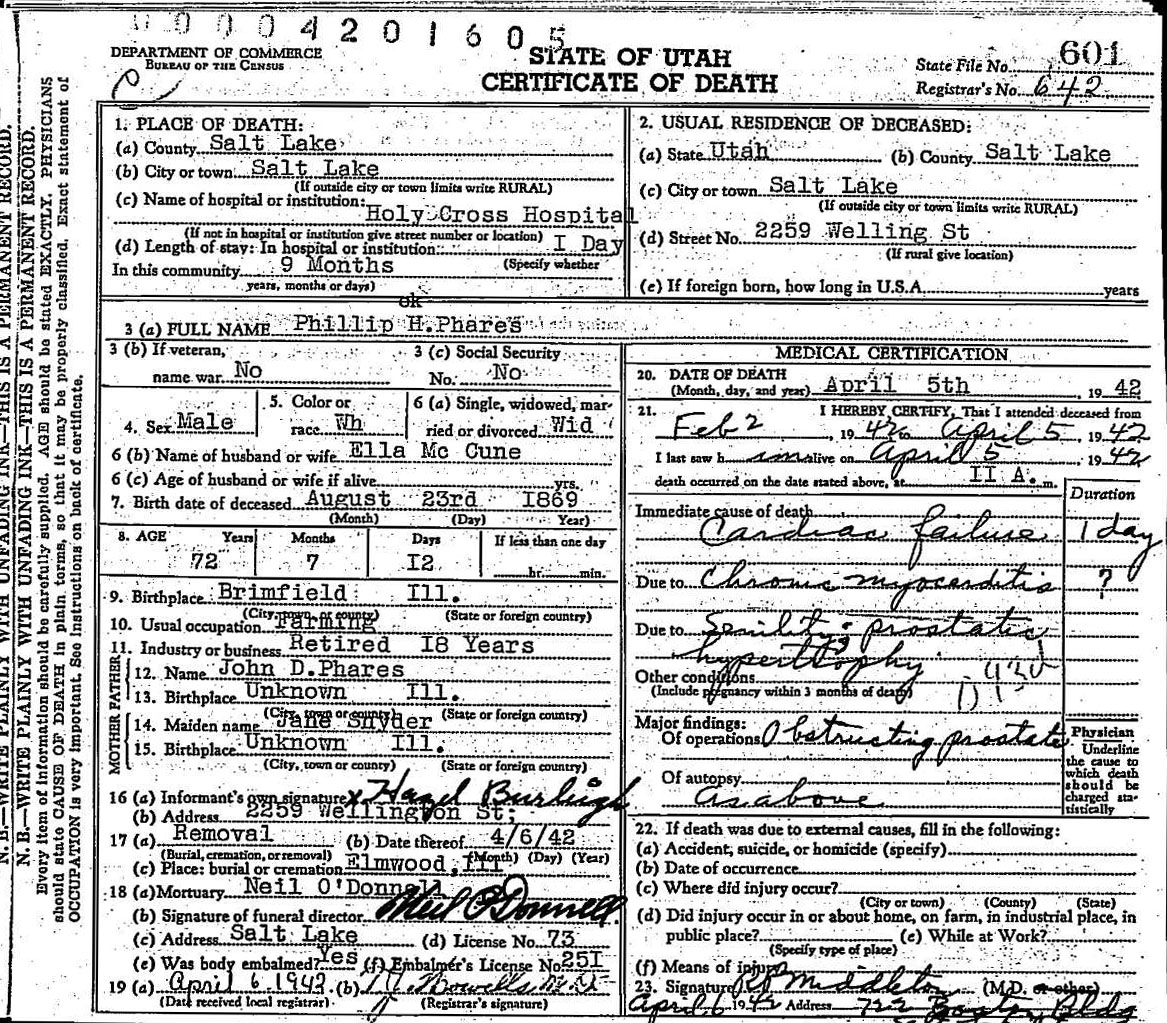 0004201605
DEPARTMENT OF COMMERCE
BUREAU OF THE CENSUS
STATE OF UTAH
CERTIFICATE OF DEATH
State File No. 601
Registrar's No. 642
N. B.—WRITE PLAINLY WITH UNFADING INK—THIS IS A PERMANENT RECORD.
N. B.—WRITE PLAINLY WITH UNFADING INK—THIS IS A PERMANENT RECORD.
Every item of information should be carefully supplied. AGE should be stated EXACTLY. PHYSICIANS
should state CAUSE OF DEATH in plain terms, so that it may be properly classified. Exact statement of
OCCUPATION is very important. See Instructions on back of certificate.
1. PLACE OF DEATH:
(a) County Salt Lake
(b) City or town Salt Lake
(If outside city or town limits write RURAL)
(c) Name of hospital or institution:
Holy Cross Hospital
(If not in hospital or institution give street number or location)
(d) Length of stay: In hospital or institution I Day
In this community 9 Months (Specify whether
years, months or days)
2. USUAL RESIDENCE OF DECEASED:
(a) State Utah (b) County Salt Lake
(c) City or town Salt Lake
(If outside city or town limits write RURAL)
(d) Street No. 2259 Welling St
(If rural give location)
(e) If foreign born, how long in U.S.A. years
ok
3 (a) FULL NAME Phillip H.Phares
3 (b) If veteran, 3 (c) Social Security
name war No No. No
4. Sex Male 5. Color or race Wh 6 (a) Single, widowed, married or divorced Wid
6 (b) Name of husband or wife Ella Mc Cune
6 (c) Age of husband or wife if alive yrs.
7. Birth date of deceased August 23rd I869
(Month) (Day) Year)
8. AGE Years Months Days If less than one day
72 7 I2 hr. min.
9. Birthplace Brimfield Ill.
(City, town or county) (State or foreign country)
10. Usual occupation Farming
11. Industry or business Retired I8 Years
FATHER
12. Name John D.Phares
13. Birthplace Unknown Ill.
(City, town or county) (State or foreign country)
MOTHER
14. Maiden name Jane Snyder
15. Birthplace Unknown Ill.
(City, town or county) (State or foreign country)
16 (a) Informant's own signature x Hazel Burleigh
(b) Address 2259 Wellington St;
17 (a) Removal (b) Date thereof 4/6/42
(Burial, cremation, or removal) (Month) (Day) (Year)
(c) Place: burial or cremation Elmwood,Ill
18 (a) Mortuary Neil O'Donnell
(b) Signature of funeral director Neil O'Donnell
(c) Address Salt Lake (d) License No. 73
(e) Was body embalmed? Yes (f) Embalmer's License No. 25I
19 (a) April 6 1942 (b)
(Date received local registrar) (Registrar's signature)
MEDICAL CERTIFICATION
20. DATE OF DEATH
(Month, day, and year) April 5th, 1942
21. I HEREBY CERTIFY, That I attended deceased from
Feb 2, 1942 to April 5, 1942
I last saw h im alive on April 5 1942
death occurred on the date stated above, at II A. m.
Duration
Immediate cause of death
Cardiac failure 1 day
Due to Chronic myocarditis ?
Due to Senility; prostatic
hypertrophy
Other conditions 93d
(Include pregnancy within 3 months of death)
Major findings:
Of operations Obstructing prostate
Of autopsy
As above
Physician
Underline
the cause to
which death
should be
charged sta-
tistically
22. If death was due to external causes, fill in the following:
(a) Accident, suicide, or homicide (specify)
(b) Date of occurrence
(c) Where did injury occur?
(City or town) (County) (State)
(d) Did injury occur in or about home, on farm, in industrial place, in
public place? (e) While at Work?
(Specify type of place)
(f) Means of injury
23. Signature Middleton (M.D. or other)
April 6 1942 Address 722 Boston Bldg